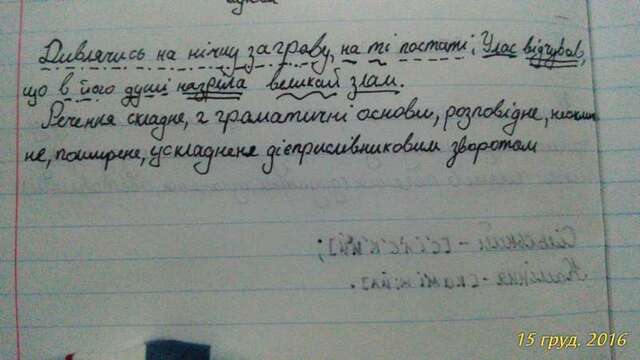 Дивлячись на нічну заграву, на ті постаті, Улас відчував,
що в його душі назріла великий злам.
Речення складне, 2 граматичні основи, розповідне, неокли
не, поширене, ускладнене дієприслівниковим зворотом
15 груд. 2016